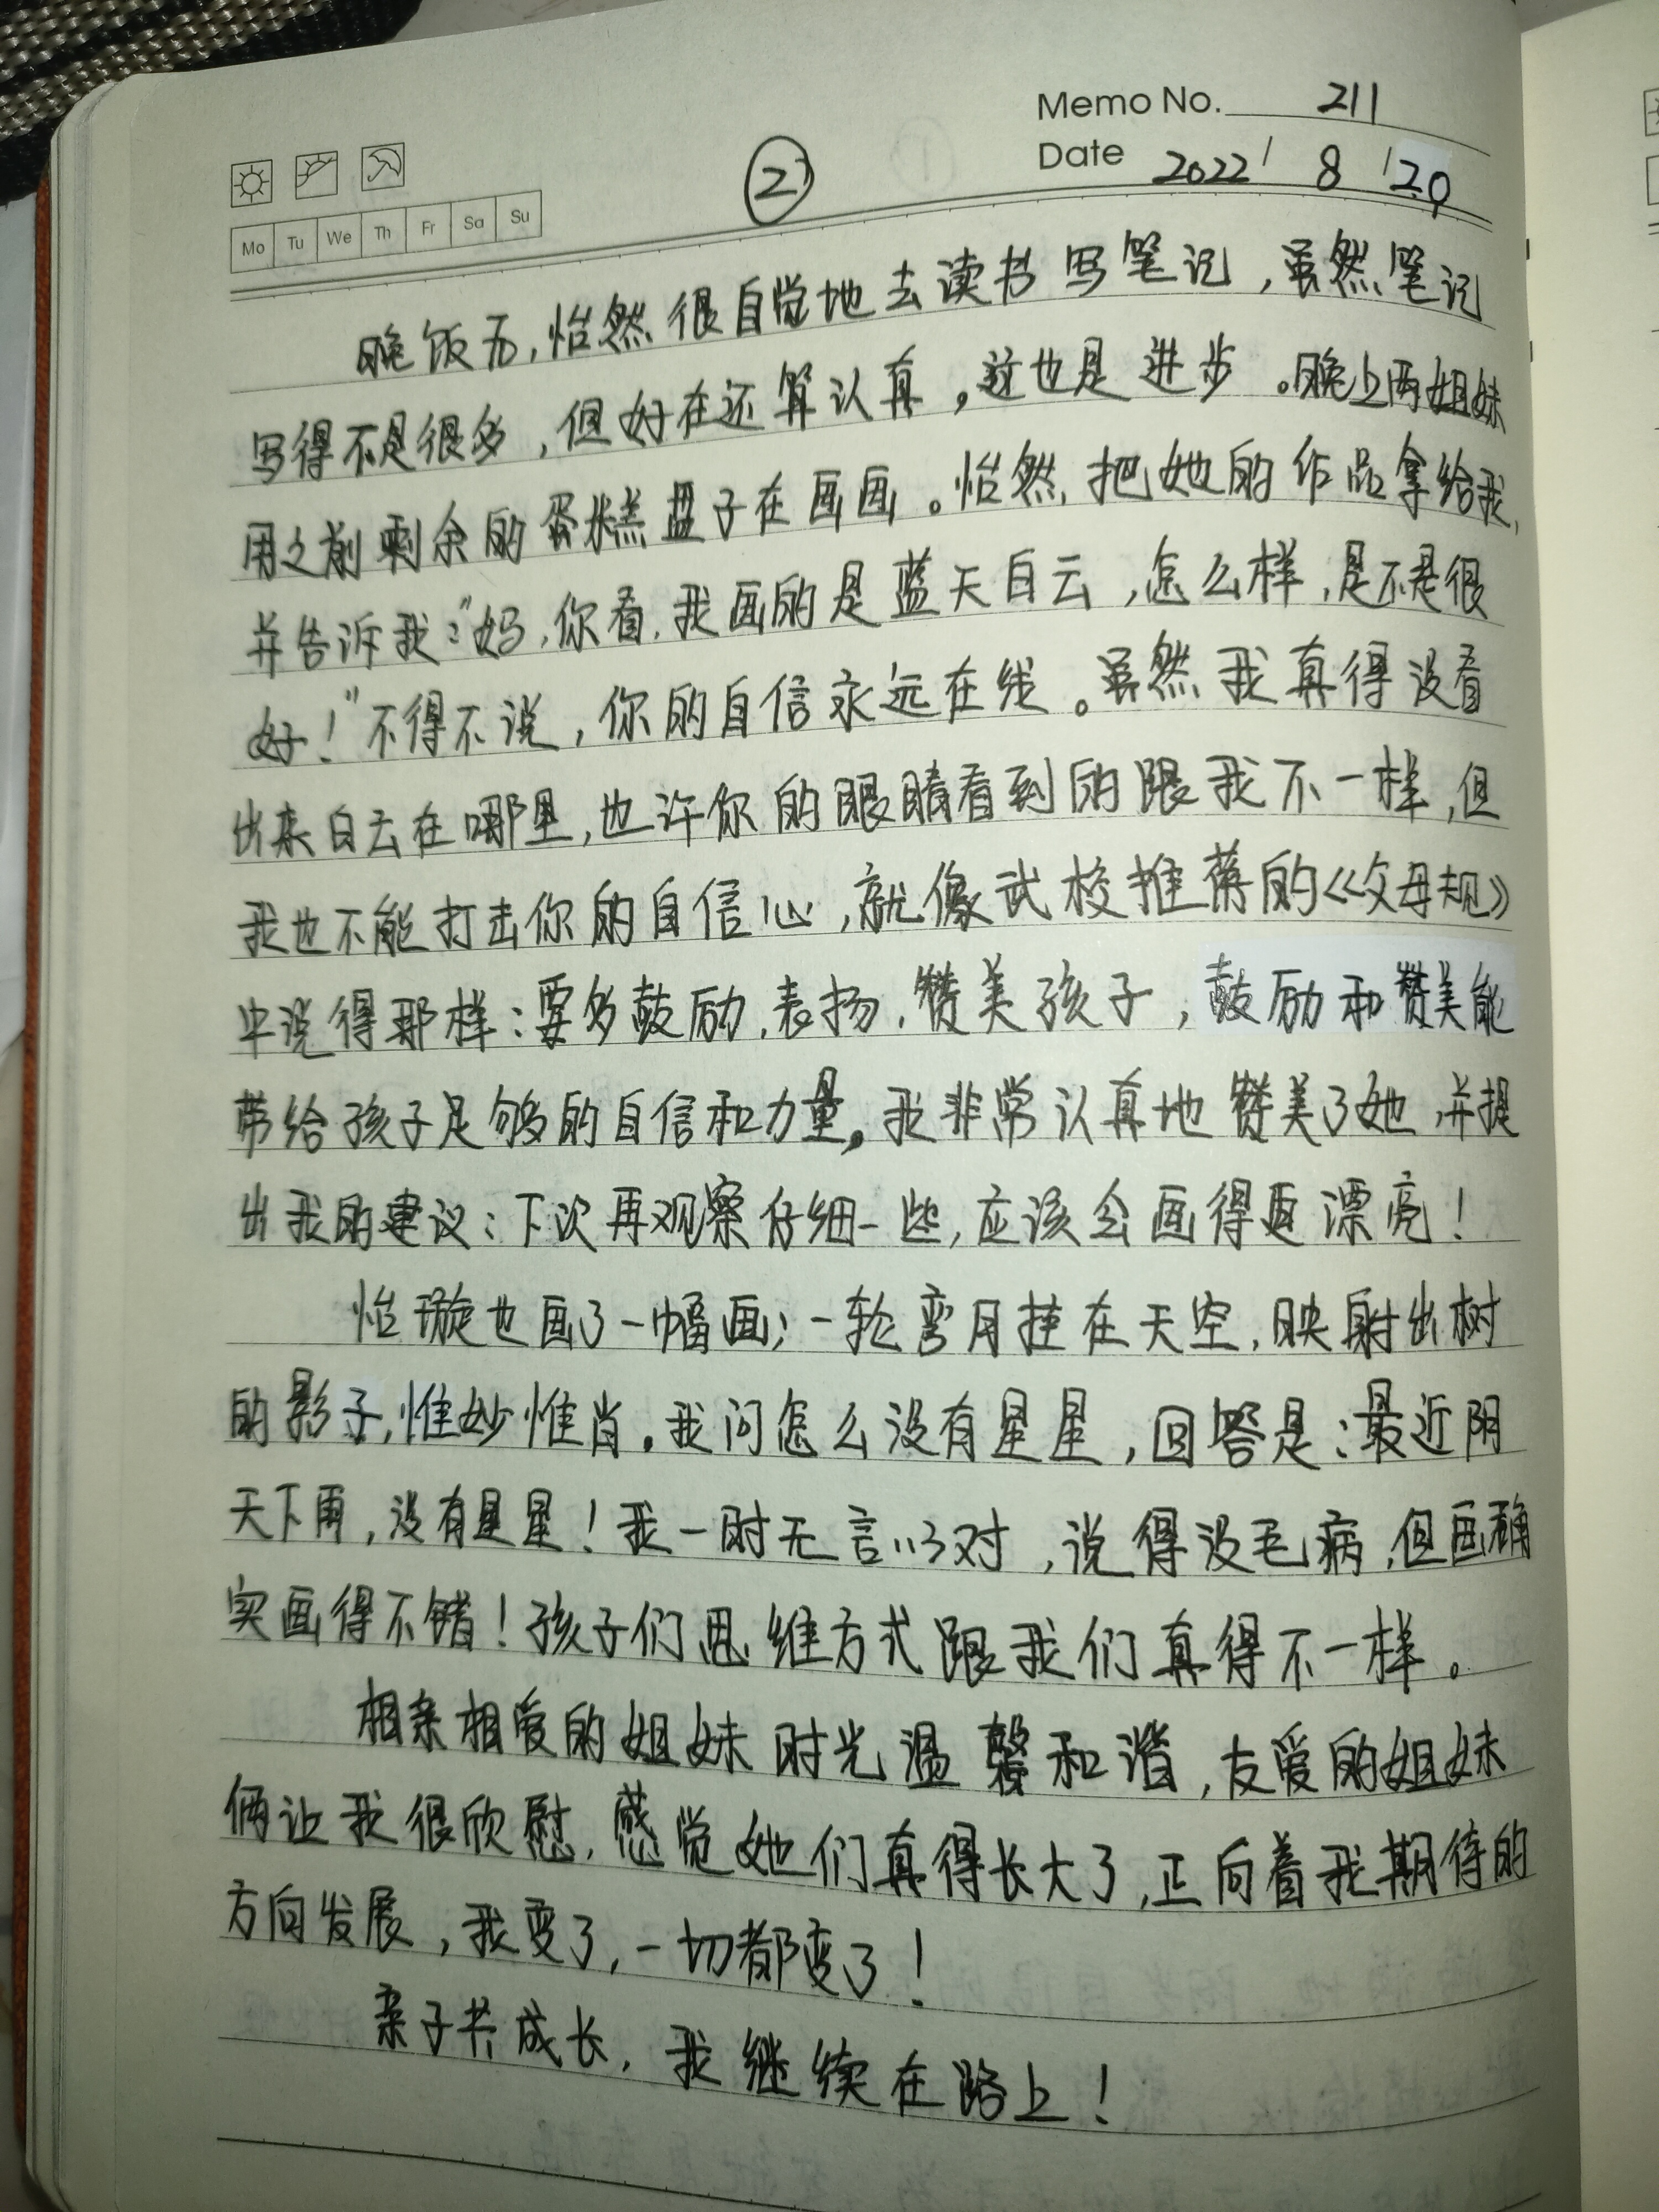 Memo No. 211
② Date 2022 / 8 / 29
Mo Tu We Th Fr Sa Su
晚饭后,怡然很自觉地去读书写笔记,虽然笔记
写得不是很多,但好在还算认真,这也是进步。晚上两姐妹
用之前剩余的蛋糕盘子在画画。怡然把她的作品拿给我,
并告诉我:"妈,你看,我画的是蓝天白云,怎么样,是不是很
好!"不得不说,你的自信永远在线。虽然我真得没看
出来白云在哪里,也许你的眼睛看到的跟我不一样,但
我也不能打击你的自信心,就像武校推荐的《父母规》
中说得那样:要多鼓励,表扬,赞美孩子,鼓励和赞美能
带给孩子足够的自信和力量。我非常认真地赞美了她,并提
出我的建议:下次再观察仔细一些,应该会画得更漂亮!
怡璇也画了一幅画;一轮弯月挂在天空,映射出树
的影子,惟妙惟肖。我问怎么没有星星,回答是:最近阴
天下雨,没有星星!我一时无言以对,说得没毛病,但画确
实画得不错!孩子们思维方式跟我们真得不一样。
相亲相爱的姐妹时光温馨和谐,友爱的姐妹
俩让我很欣慰,感觉她们真得长大了,正向着我期待的
方向发展,我变了,一切都变了!
亲子共成长,我继续在路上!